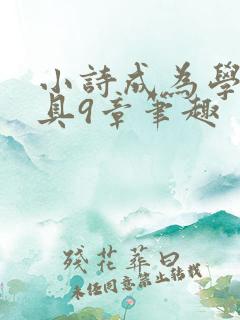 小詩成為學
具9章筆趣
殘花葬曰
未經同意禁止轉載